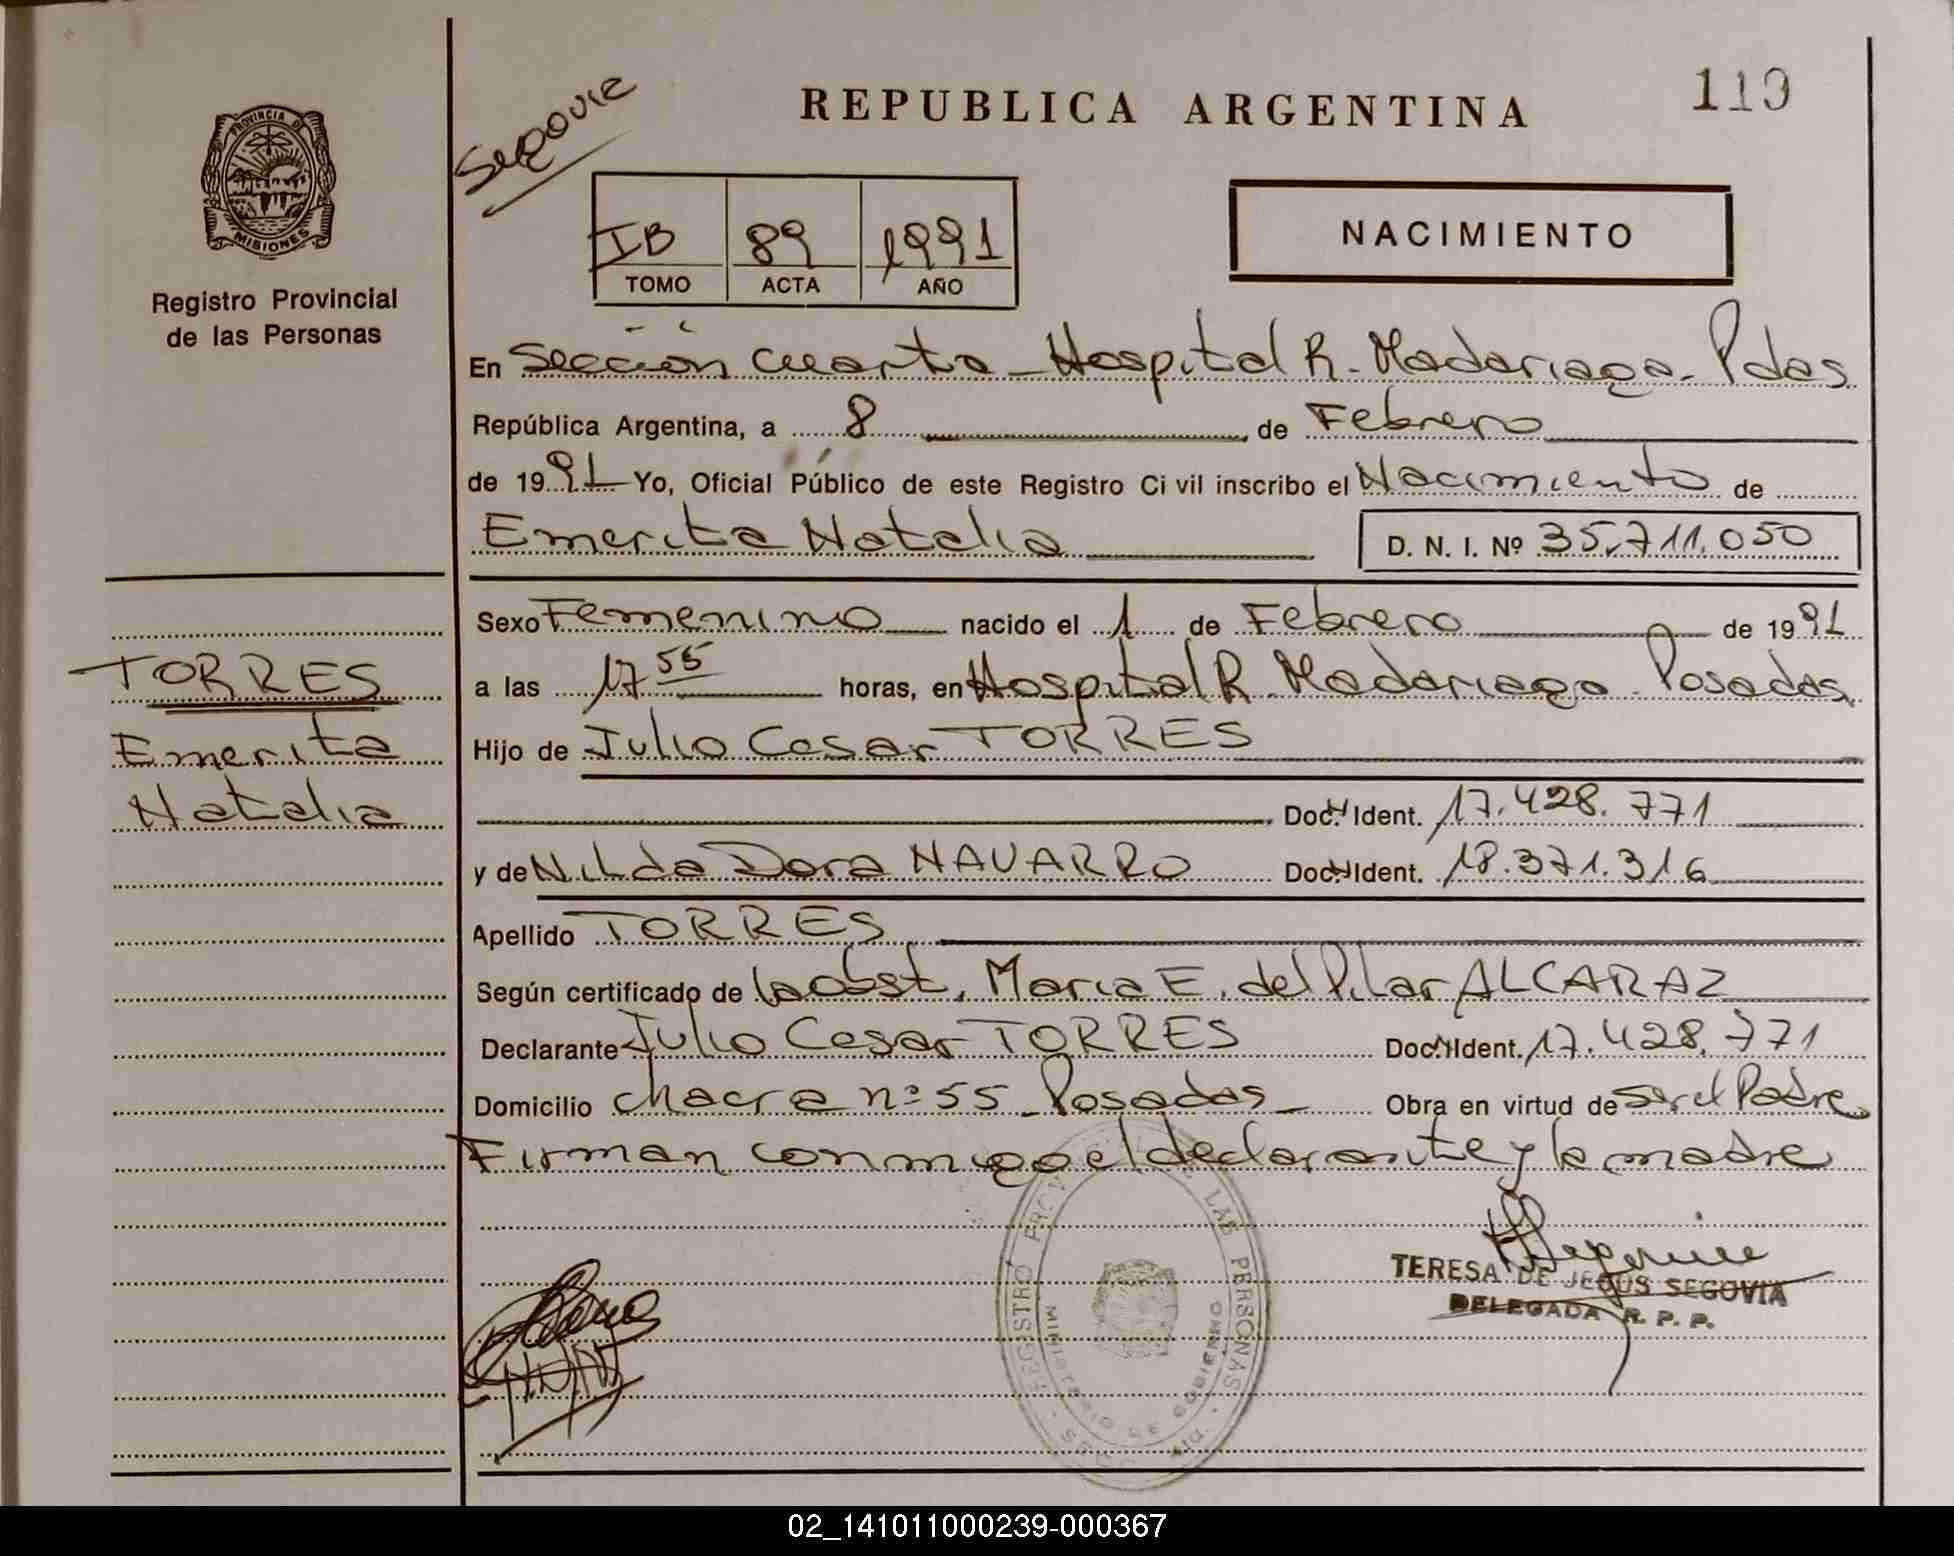 REPUBLICA ARGENTINA
119
Segovia
PROVINCIA DE
MISIONES
Registro Provincial
de las Personas
IB 89 1991
TOMO ACTA AÑO
NACIMIENTO
En Sección Cuarta - Hospital R. Madariaga - Pdas
República Argentina, a 8 de Febrero
de 1991 Yo, Oficial Público de este Registro Ci vil inscribo el Nacimiento de
Emerita Natalia D. N. I. Nº 35.711.050
Sexo Femenino nacido el 1 de Febrero de 1991
a las 17 55 horas, en Hospital R. Madariaga - Posadas
Hijo de Julio Cesar TORRES
Doc. Ident. 17.428.771
y de Nilda Dora NAVARRO Doc. Ident. 18.371.316
Apellido TORRES
Según certificado de la Obst. Maria E. del Pilar ALCARAZ
Declarante Julio Cesar TORRES Doc. Ident. 17.428.771
Domicilio chacra nº 55 - Posadas - Obra en virtud de ser el Padre
Firman conmigo el declarante y la madre
TORRES
Emerita
Natalia
TERESA DE JESUS SEGOVIA
DELEGADA R. P. P.
REGISTRO PROV DE LAS PERSONAS
MINISTERIO DE GOBIERNO
02_141011000239-000367